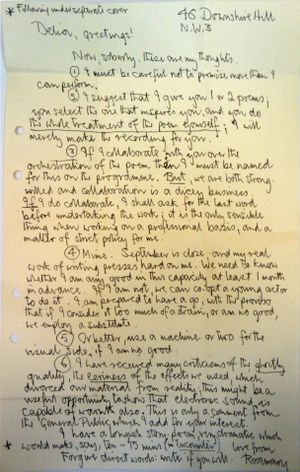 * Following under separate cover
46 Downshire Hill
N.W.3
Delia, greetings!
Now, soberly, these are my thoughts.
① I must be careful not to promise more than I
can perform.
② I suggest that I give you 1 or 2 poems;
you select the one that inspires you, and you do
the whole treatment of the poem yourself; I will
merely make the recording for you.
③ If I collaborate with you over the
orchestration of the poem, then I must be named
for this on the programme. But, we are both strong-
willed and collaboration is a dicey business.
If I do collaborate, I shall ask for the last word
before undertaking the work; it is the only sensible
thing when working on a professional basis, and a
matter of strict policy for me.
④ Mime. September is close, and my real
work of writing presses hard on me. We need to know
whether I am any good in this capacity at least 1 month
in advance. If I am not, we can co-opt a young actor
to do it. I am prepared to have a go, with the proviso
that if I consider it too much of a strain, or am no good,
we employ a substitute.
⑤ Or better, use a machine or two for the
visual side, if I am no good.
⑥ I have received many criticisms of the ghostly
quality, the eeriness of the effects we used which
divorced our material from reality; this might be a
useful opportunity to show that electronic sound is
capable of warmth also. This is only a comment from
the General Public which I add for your interest.
I have a longish story poem, very dramatic which
* would make, say, ten - 15 mins (
Love from
Forgive direct words: write if you will. Rosemary